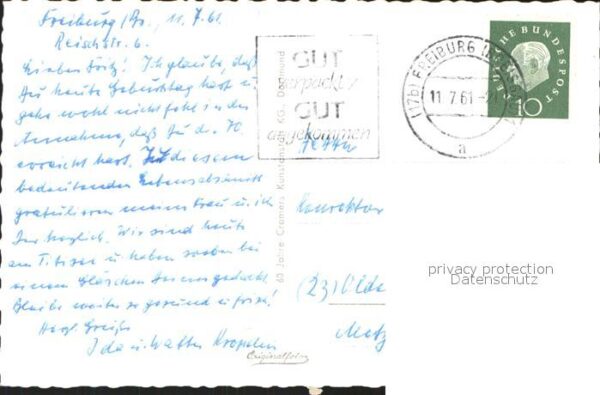 Freiburg/Br., 11.7.61.
Reischstr. 6.
Lieber Fritz! Ich glaube, daß
Du heute Geburtstag hast u.
gehe wohl nicht fehl in der
Annahme, daß Du d. 70.
erreicht hast. Zu diesem
bedeutenden Lebensabschnitt
gratulieren meine Frau u. ich
Dir herzlich. Wir sind heute
am Titisee u. haben soeben bei
einem Gläschen Deiner gedacht.
Bleibe weiter so gesund u. frisch!
Herzl. Grüße
Ida u. Walter
Originalfoto
60 Jahre Cramers Kunstanstalt KG., Dortmund
GUT
verpackt
GUT
angekommen
(17b) FREIBURG
11.7.61
a
DEUTSCHE BUNDESPOST
10
Herrn
Konrektor
(23) Olde
Metz
privacy protection
Datenschutz